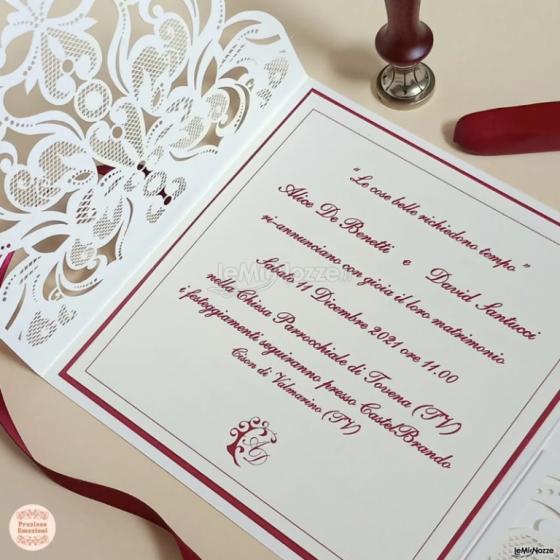 "Le cose belle richiedono tempo"
Alice De Benetti e David Santucci
ri-annunciano con gioia il loro matrimonio
Sabato 11 Dicembre 2021 ore 11.00
nella Chiesa Parrocchiale di Tovena (TV)
i festeggiamenti seguiranno presso CastelBrando
Cison di Valmarino (TV)
AD
leMieNozze.it
Preziose
Emozioni
leMieNozze